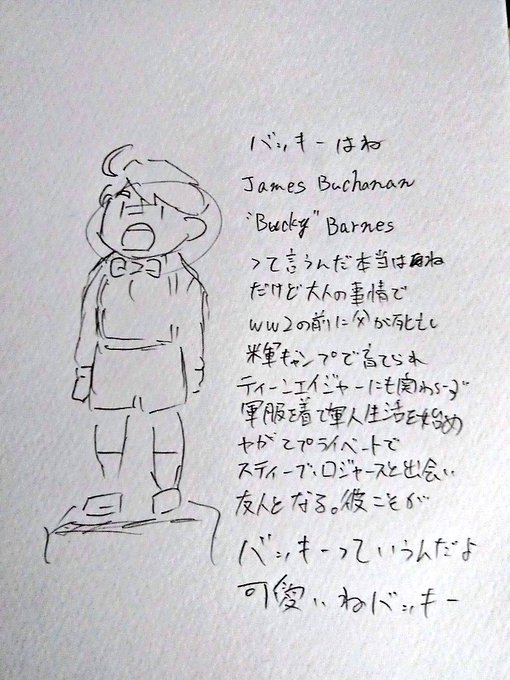 バッキーはね
James Buchanan
"Bucky" Barnes
って言うんだ本当はね
だけど大人の事情で
WW2の前に父が死亡し
米軍キャンプで育てられ
ティーンエイジャーにも関わらず
軍服を着て軍人生活を始め
やがてプライベートで
スティーブ・ロジャースと出会い
友人となる。彼こそが
バッキーっていうんだよ
可愛いねバッキー